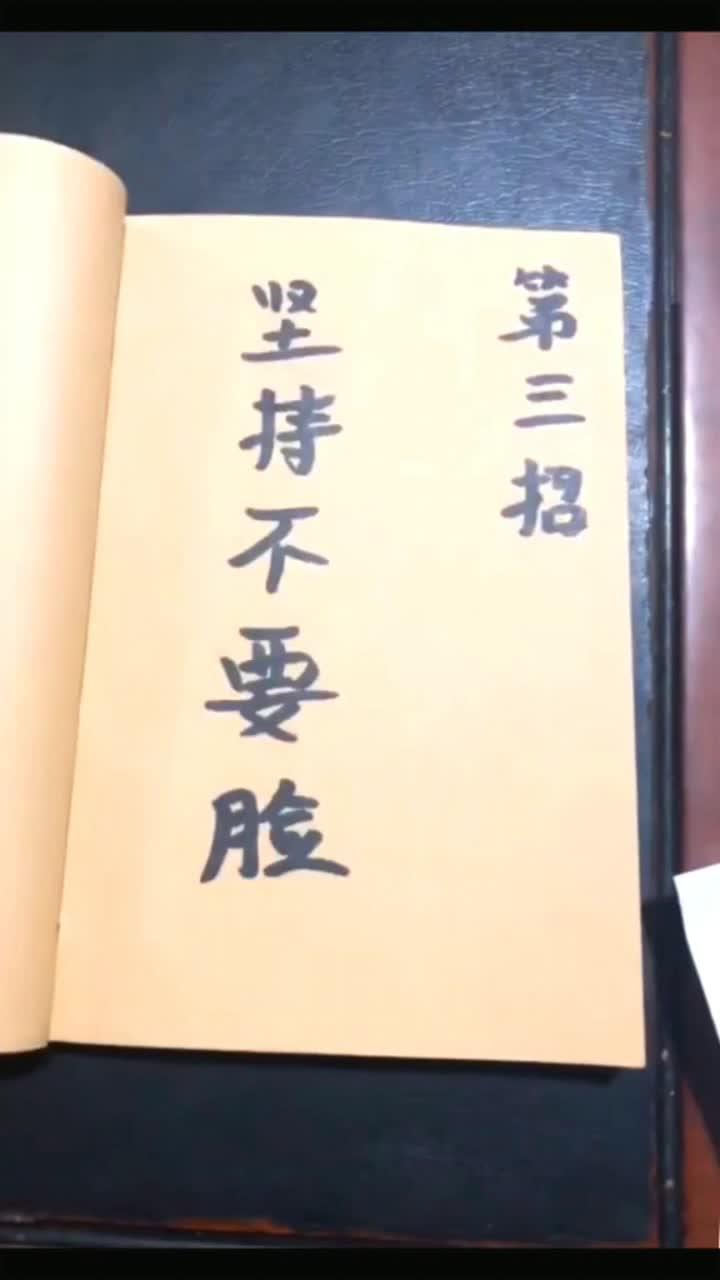 第三招
坚持不要脸